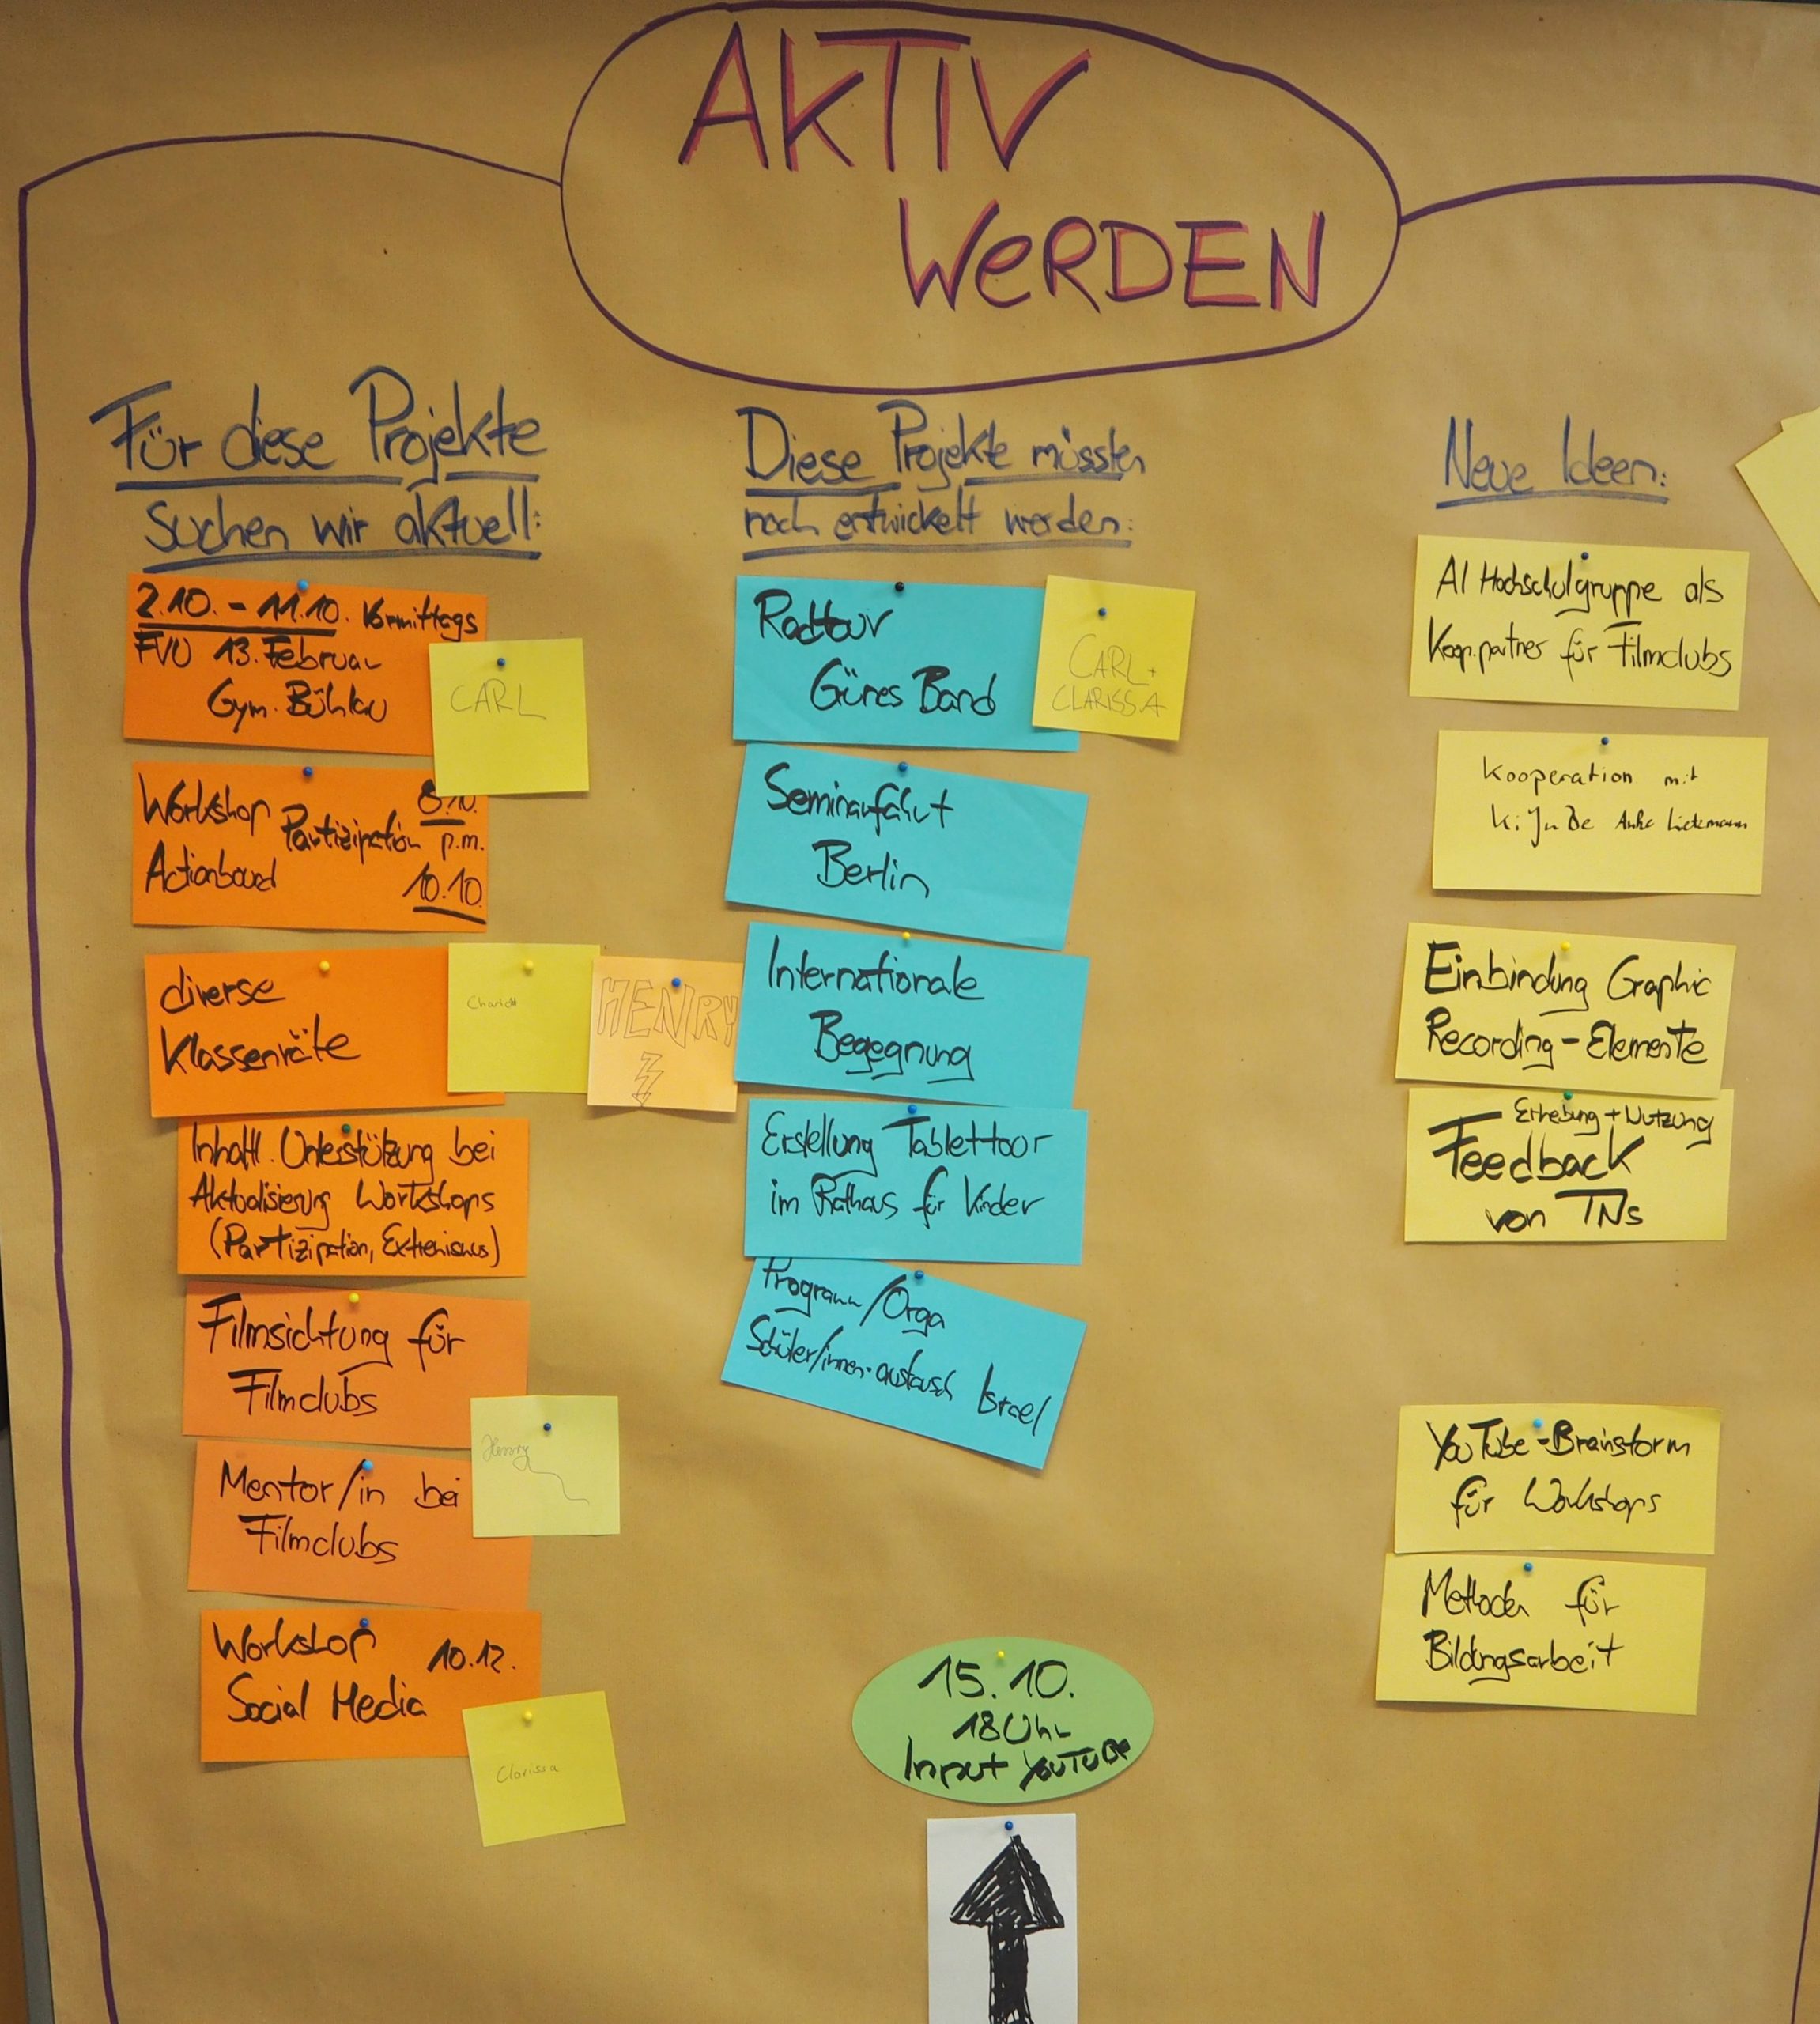 AKTIV
WeRDEN
Für diese Projekte
suchen wir aktuell:
2.10. - 11.10. Vormittags
FVU 13. Februar
Gym. Bühlau
CARL
Workshop Partizipation 8.10. p.m.
Actionbound 10.10.
diverse
Klassenräte
HENRY
Inhaltl. Unterstützung bei
Aktualisierung Workshops
(Partizipation, Extremismus)
Filmsichtung für
Filmclubs
Mentor/in bei
Filmclubs
Henry
Workshop 10.12.
Social Media
Clarissa
Diese Projekte müssten
noch entwickelt werden:
Radtour
Günes Band
CARL +
CLARISSA
Seminarfahrt
Berlin
Internationale
Begegnung
Erstellung Tablettour
im Rathaus für Kinder
Programm/Orga
Schüler/innen-austausch Israel
15.10.
18 Uhr
Input YOUTUBE
Neue Ideen:
AI Hochschulgruppe als
Koop.partner für Filmclubs
Kooperation mit
KiJuBe Anke Lietzmann
Einbindung Graphic
Recording-Elemente
Erhebung + Nutzung
Feedback
von TNs
YouTube-Brainstorm
für Workshops
Methoden für
Bildungsarbeit